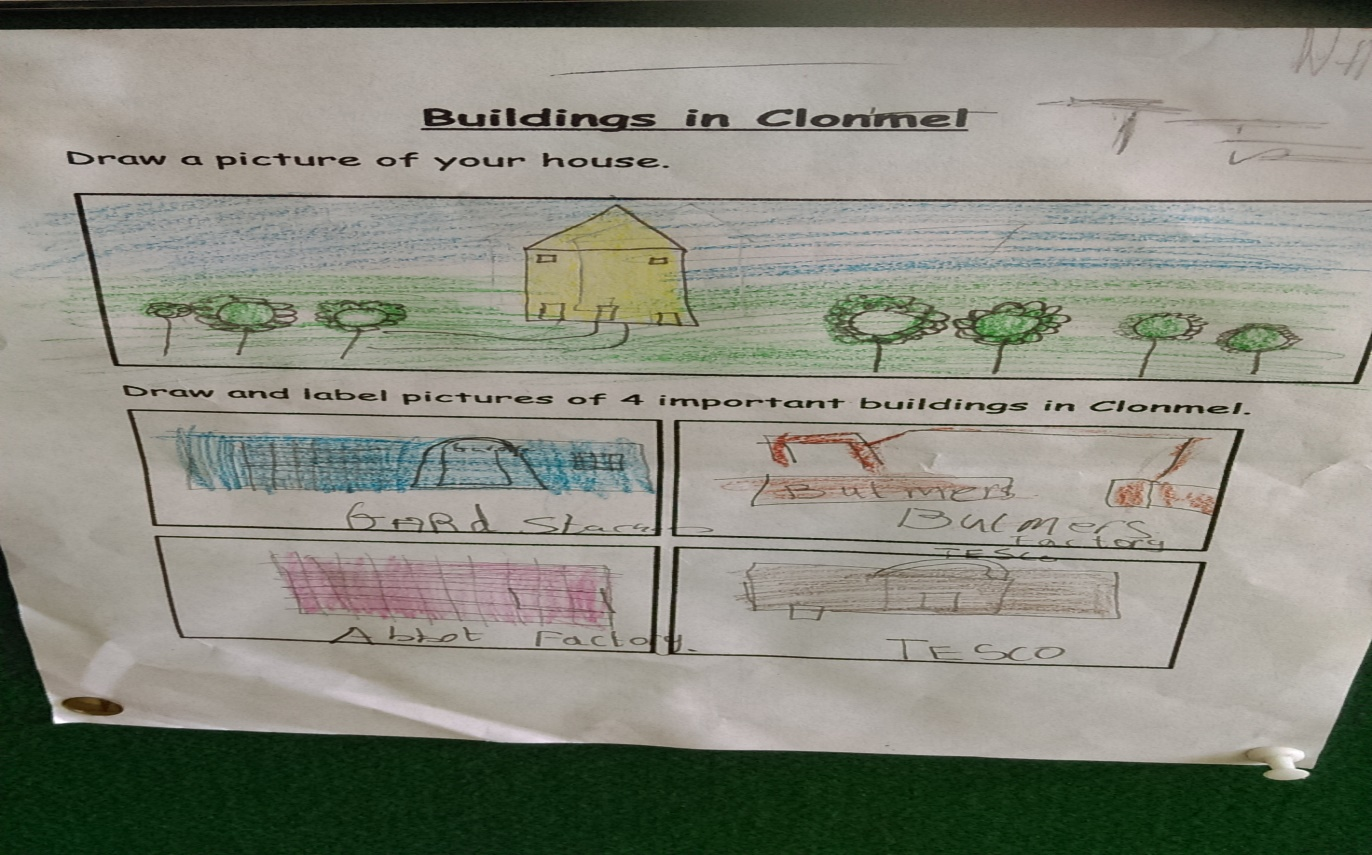 Buildings in Clonmel
Draw a picture of your house.
Draw and label pictures of 4 important buildings in Clonmel.
GARd
Bulmers
Bulmers
Factory
TESCo
Abbot Factory.
TESCO